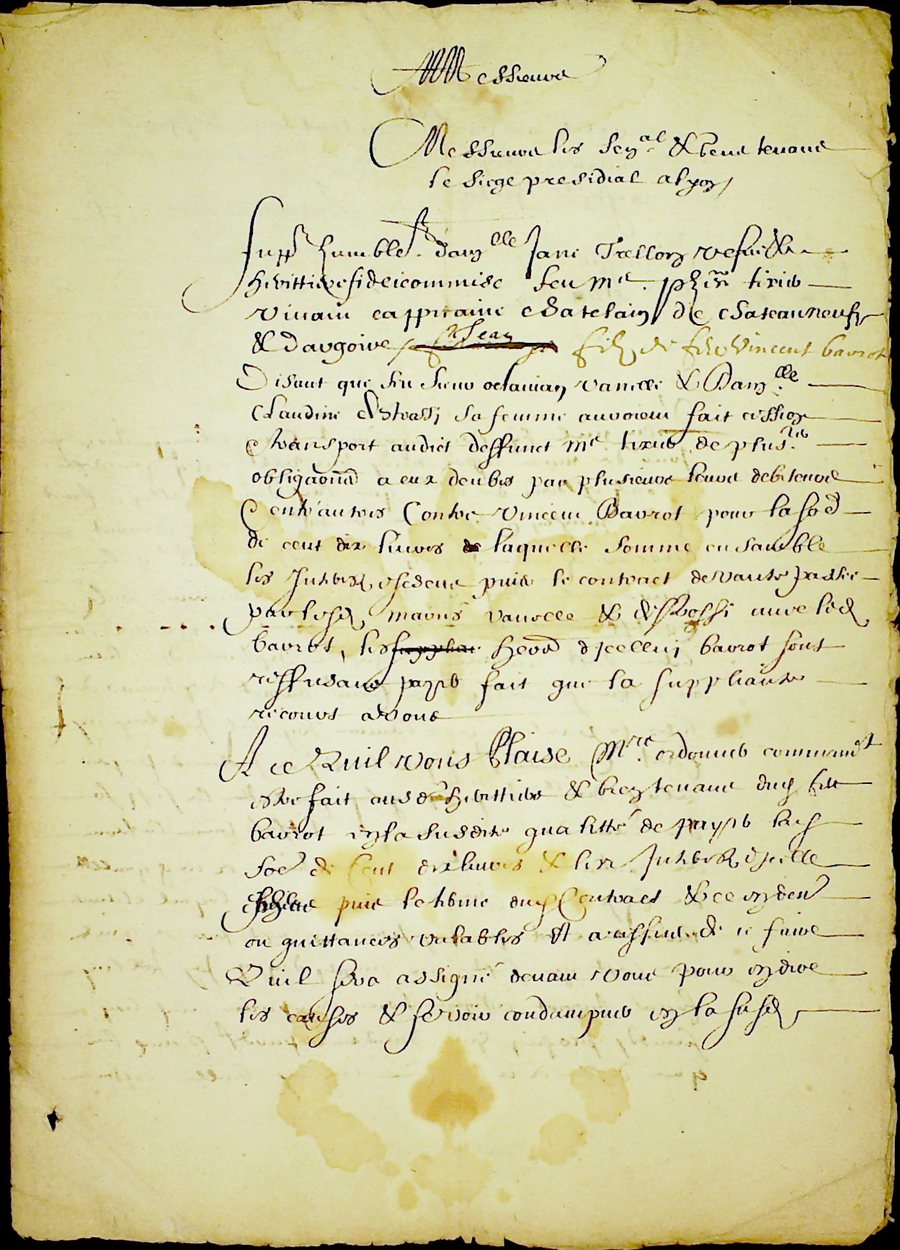 Messieurs
Messieurs les Sen.al & gens tenans
le siege presidial a lyon
Supp.e humble.t dam.lle Jane Trellon vefve &
herittiere fideicommise feu m.e tixier
vivant cappitaine chatelain de chateauneuf
& dargoire filz de feu Vincent barrot
Disant que feu sieur octavian vanelle & Dam.lle
Claudine sa femme auroient fait cession
& transport audict deffunct m.e tixier de plus.rs
obligaons a eux deubes par plusieurs leurs debiteurs
Et entr'autres Contre Vincent Barrot pour la so.e
de cent dix livres laquelle somme ensemble
les Interestz puis le contract
par lesd. mariés vanelle & avec led.
barrot, les heor. d'jcelluj barrot sont
reffusans payer fait que la suppliante
recourt a vous
A ce Quil vous Plaise M.rs ordonner commandem.t
estre fait aus d. herittiers & bien tenans dud. feu
barrot en la susditte qualitté de payer lad.
so.e de Cent dix livres & les Interestz d'jcelle
puis le terme dud. Contract & ce en den.
ou quittances valables Et a reffus de ce faire
Quil sera assigné devant vous pour en dire
les causes & se voir condampner en la susd.